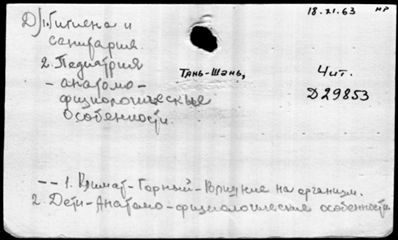 18.XI.63 НР
Д) 1. Гигиена и
санитария.
2. Педиатрия
- анатомо-
физиологические
особенности.
Тянь-Шань,
Чит.
Д29853
-- 1. Климат-Горный-Влияние на организм.
2. Дети-Анатомо-физиологические особенности